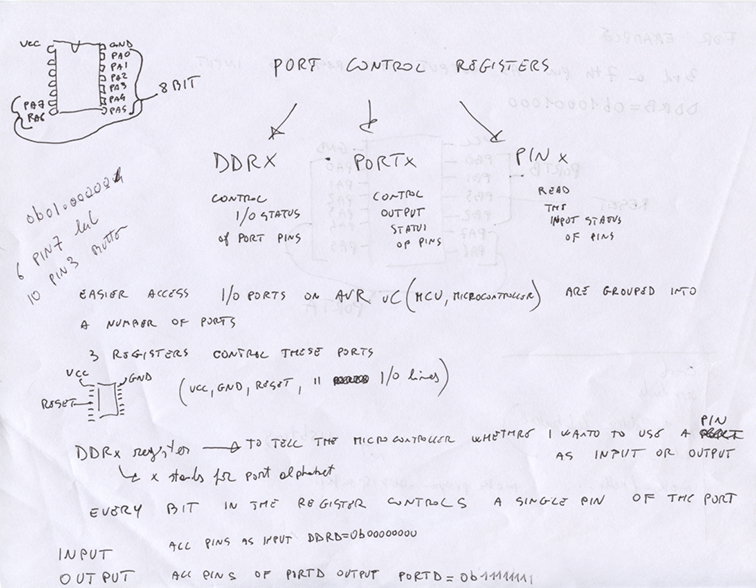 VCC GND
PA0
PA1
PA2
PA3
PA4
PA5
PA7
PA6
8 BIT
PORT CONTROL REGISTERS
DDRX PORTX PINx
CONTROL I/O STATUS of PORT PINS
CONTROL OUTPUT STATUS OF PINS
READ THE INPUT STATUS OF PINS
6 PIN7 led
10 PIN3 Button
EASIER ACCESS I/O PORTS ON AVR uC (MCU, MICROCONTROLLER) ARE GROUPED INTO
A NUMBER OF PORTS
3 REGISTERS CONTROL THESE PORTS
VCC GND
RESET
(VCC, GND, RESET, 11 I/O lines)
DDRx register → TO TELL THE MICROCONTROLLER WHETHRE I WANTO TO USE A PIN
AS INPUT OR OUTPUT
x stands for port alphabet
EVERY BIT IN THE REGISTER CONTROLS A SINGLE PIN OF THE PORT
INPUT ALL PINS AS INPUT DDRD=0b00000000
OUTPUT ALL PINS OF PORTD OUTPUT PORTD=0b11111111